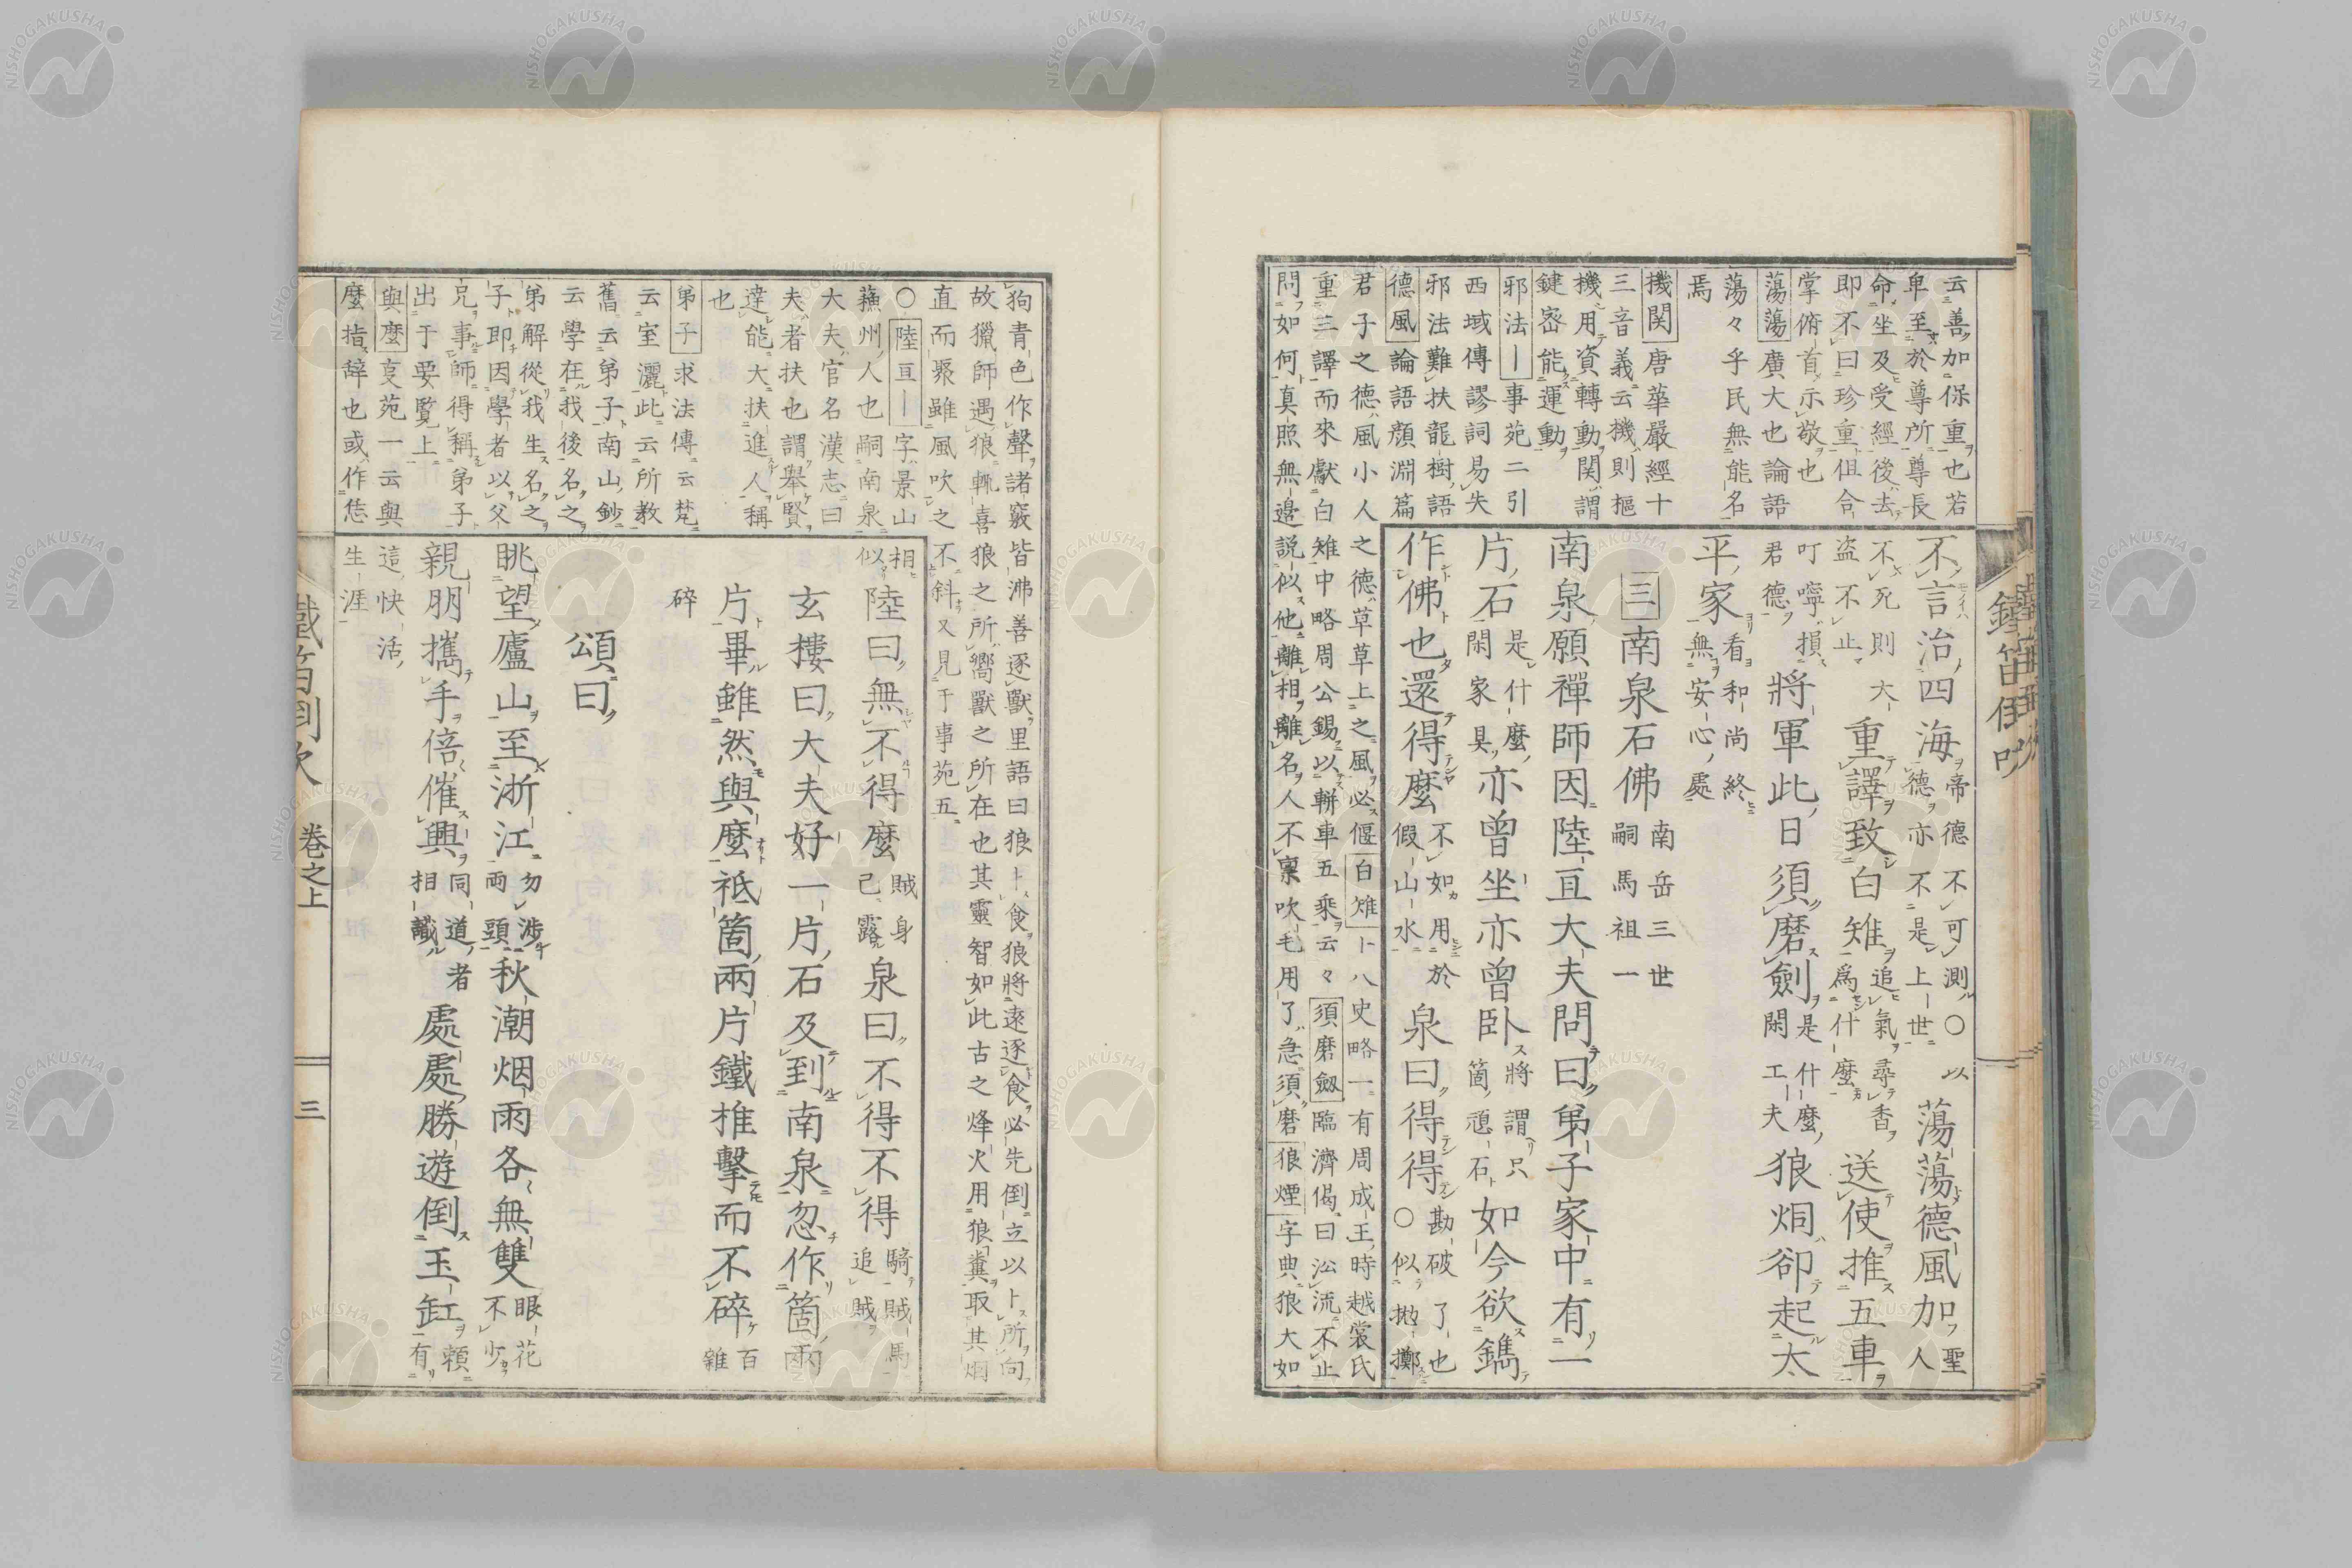 云善加保重也若
卑至於尊所尊長
命坐及受經後去
即不曰珍重伹合
掌俯首示敬也
蕩蕩廣大也論語
蕩々乎民無能名
焉
機関唐華嚴經十
三音義云機則樞
機用資轉動関謂
鍵密能運動
邪法丨事苑二引
西域傳謬詞易失
邪法難扶龍樹語
德風論語顏淵篇
君子之德風小人之德草草上之風必偃白雉卜八史略一有周成王時越裳氏
重三譯而來獻白雉中略周公錫以軿車五乗云々須磨劔臨濟偈曰沿流不止
問如何真照無邊說似他離相離名人不稟吹毛用了急須磨狼煙字典狼大如
不言治四海帝德不可測○以德亦不是上世蕩蕩德風加聖人
不死則大盗不止重譯致白雉追氣尋香爲什麼送使推五車
叮嚀損君德將軍此日須磨劍是什麼閑工夫狼烟卻起太
平家看和尚終無安心處
三南泉石佛南岳三世嗣馬祖一
南泉願禪師因陸亘大夫問曰弟子家中有一
片石是什麼閑家具亦曾坐亦曾卧將謂只箇頑石如今欲鐫
作佛也還得麼不如用於假山水泉曰得得勘破了也○似抛擲
鐵笛倒吹
狗青色作聲諸竅皆沸善逐獸里語曰狼卜食狼將遠逐食必先倒立以卜所向
故獵師遇狼輒喜狼之所嚮獸之所在也其靈智如此古之烽火用狼糞取其烟
直而聚雖風吹之不斜又見于事苑五
○陸亘丨字景山
蘓州人也嗣南泉
大夫官名漢志曰
夫者扶也謂舉賢
達能大扶進人稱
也
弟子求法傳云梵
云室灑此云所教
舊云弟子南山鈔
云學在我後名之
弟解從我生名之
子即因學者以父
兄事師得稱弟子
出于要覧上
與麼㕝苑一云與
麼指辞也或作恁
相似陸曰無不得麼賊身已露泉曰不得不得騎賊馬追賊
玄樓曰大夫好一片石及到南泉忽作箇兩
片畢雖然與麼祇箇兩片鐵推擊而不碎百雜
碎
頌曰
眺望廬山至浙江勿涉兩頭秋潮烟雨各無雙眼花不少
親朋攜手倍催興同道者相識處處勝遊倒玉缸頼有
這快活生涯
鐵笛倒吹 巻之上 三
NISHOGAKUSHA